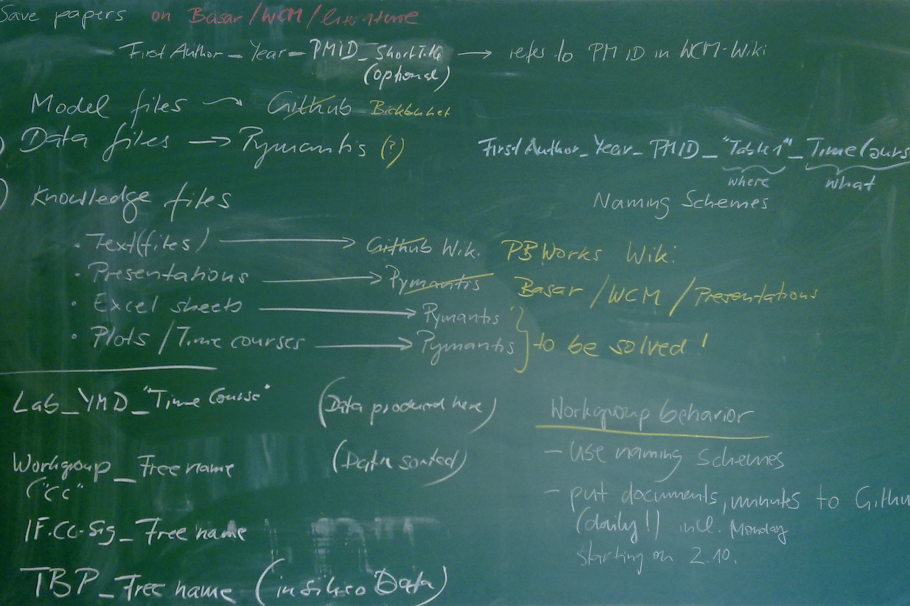 Save papers on Basar/WCM/literature
First Author_Year_PMID_Short Title → refers to PMID in WCM-Wiki
(optional)
Model files → Github Bickbucket
Data files → Pymantis (?)
First Author_Year_PMID_"Table 1"_Time Cours
where what
Naming Schemes
Knowledge files
· Text(files) → Github Wiki PBWorks Wiki
· Presentations → Pymantis Basar/WCM/Presentations
· Excel sheets → Pymantis
· Plots/Time courses → Pymantis } to be solved!
Lab_YMD_"Time Course" (Data produced here)
Workgroup_Free name (Data sorted)
("CC"
IF.CC-Sig_Free name
TBP_Free name (in silico Data)
Workgroup behavior
- use naming schemes
- put documents, minutes to Githu
(daily!) incl. Monday
starting on 2.10.